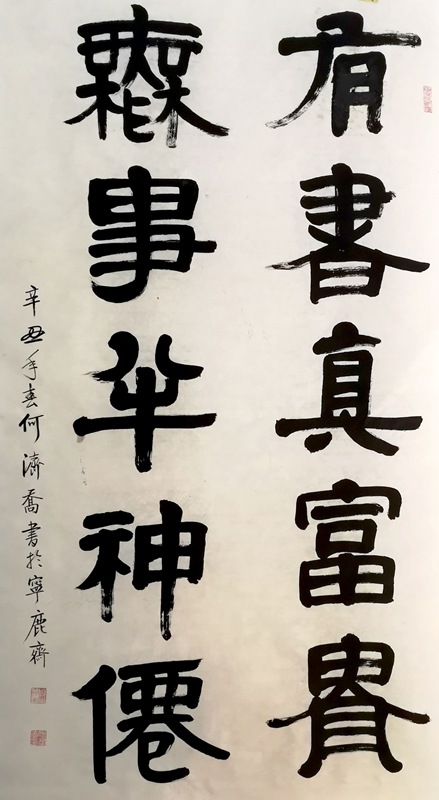 有書真富貴
無事半神僊
辛丑年春何濟喬書於寧鹿齋